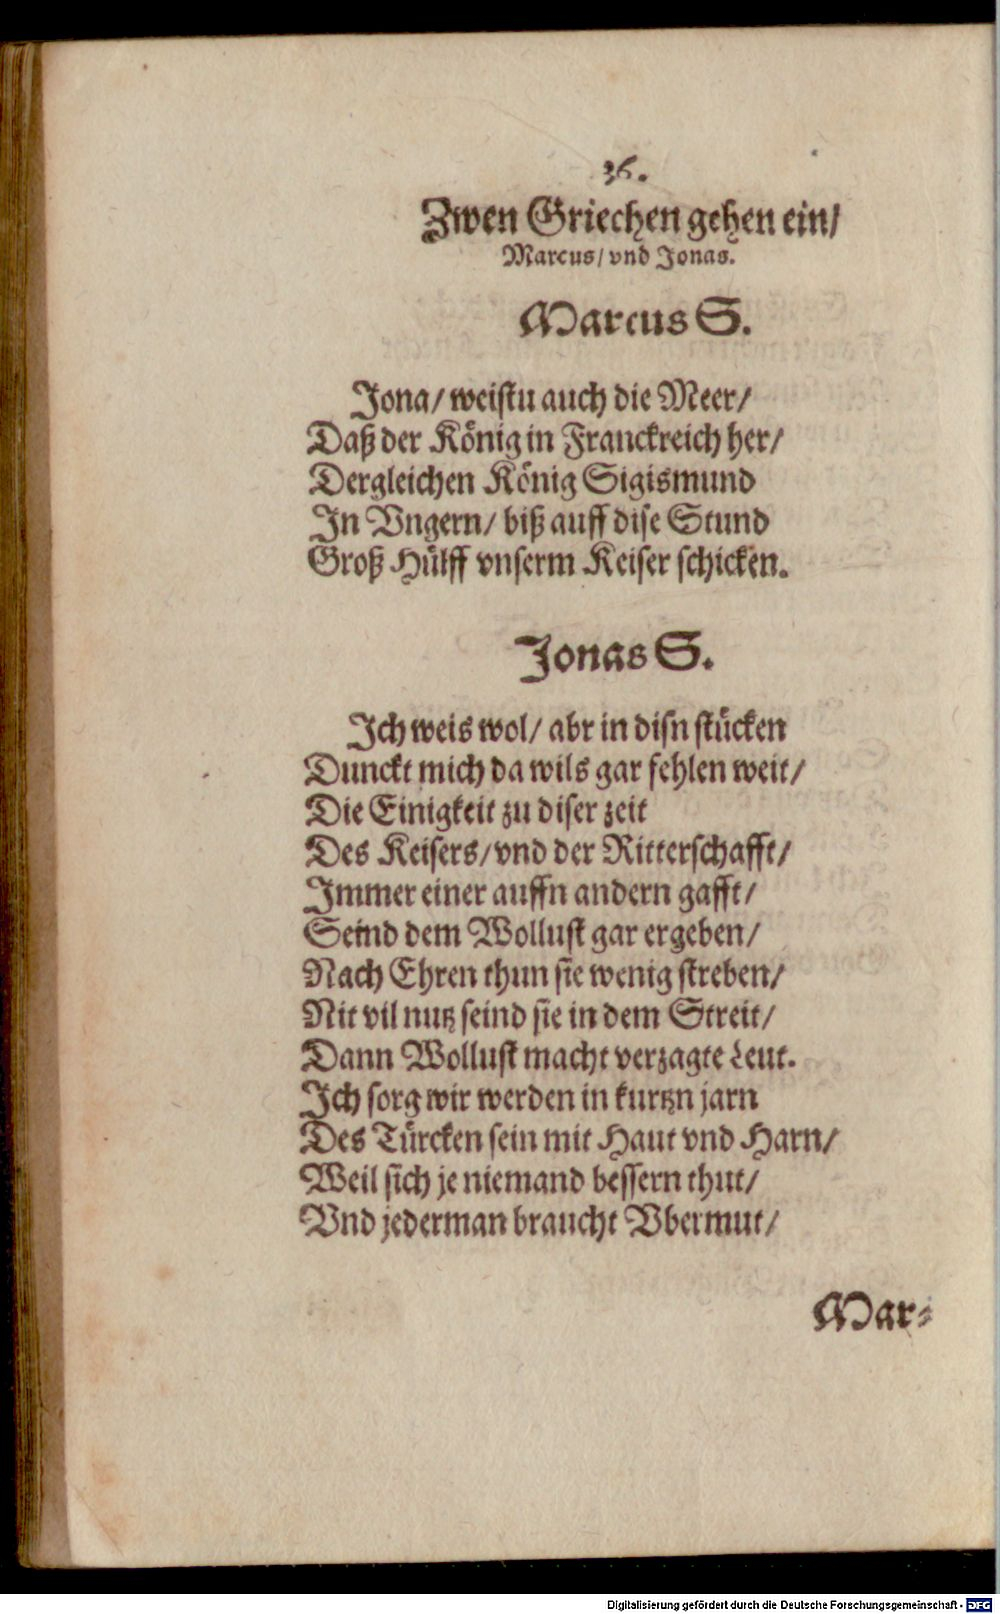 36.
Zwen Griechen gehen ein/
Marcus/ vnd Jonas.
Marcus S.
Jona/ weistu auch die Meer/
Daß der König in Franckreich her/
Dergleichen König Sigismund
In Vngern/ biß auff dise Stund
Groß Hülff vnserm Keiser schicken.
Jonas S.
Ich weis wol/ abr in disn stücken
Dunckt mich da wils gar fehlen weit/
Die Einigkeit zu diser zeit
Des Keisers/ vnd der Ritterschafft/
Immer einer auffn andern gafft/
Seind dem Wollust gar ergeben/
Nach Ehren thun sie wenig streben/
Nit vil nutz seind sie in dem Streit/
Dann Wollust macht verzagte Leut.
Ich sorg wir werden in kurtzn jarn
Des Türcken sein mit Haut vnd Harn/
Weil sich je niemand bessern thut/
Vnd jederman braucht Vbermut/
Mar-
Digitalisierung gefördert durch die Deutsche Forschungsgemeinschaft - DFG